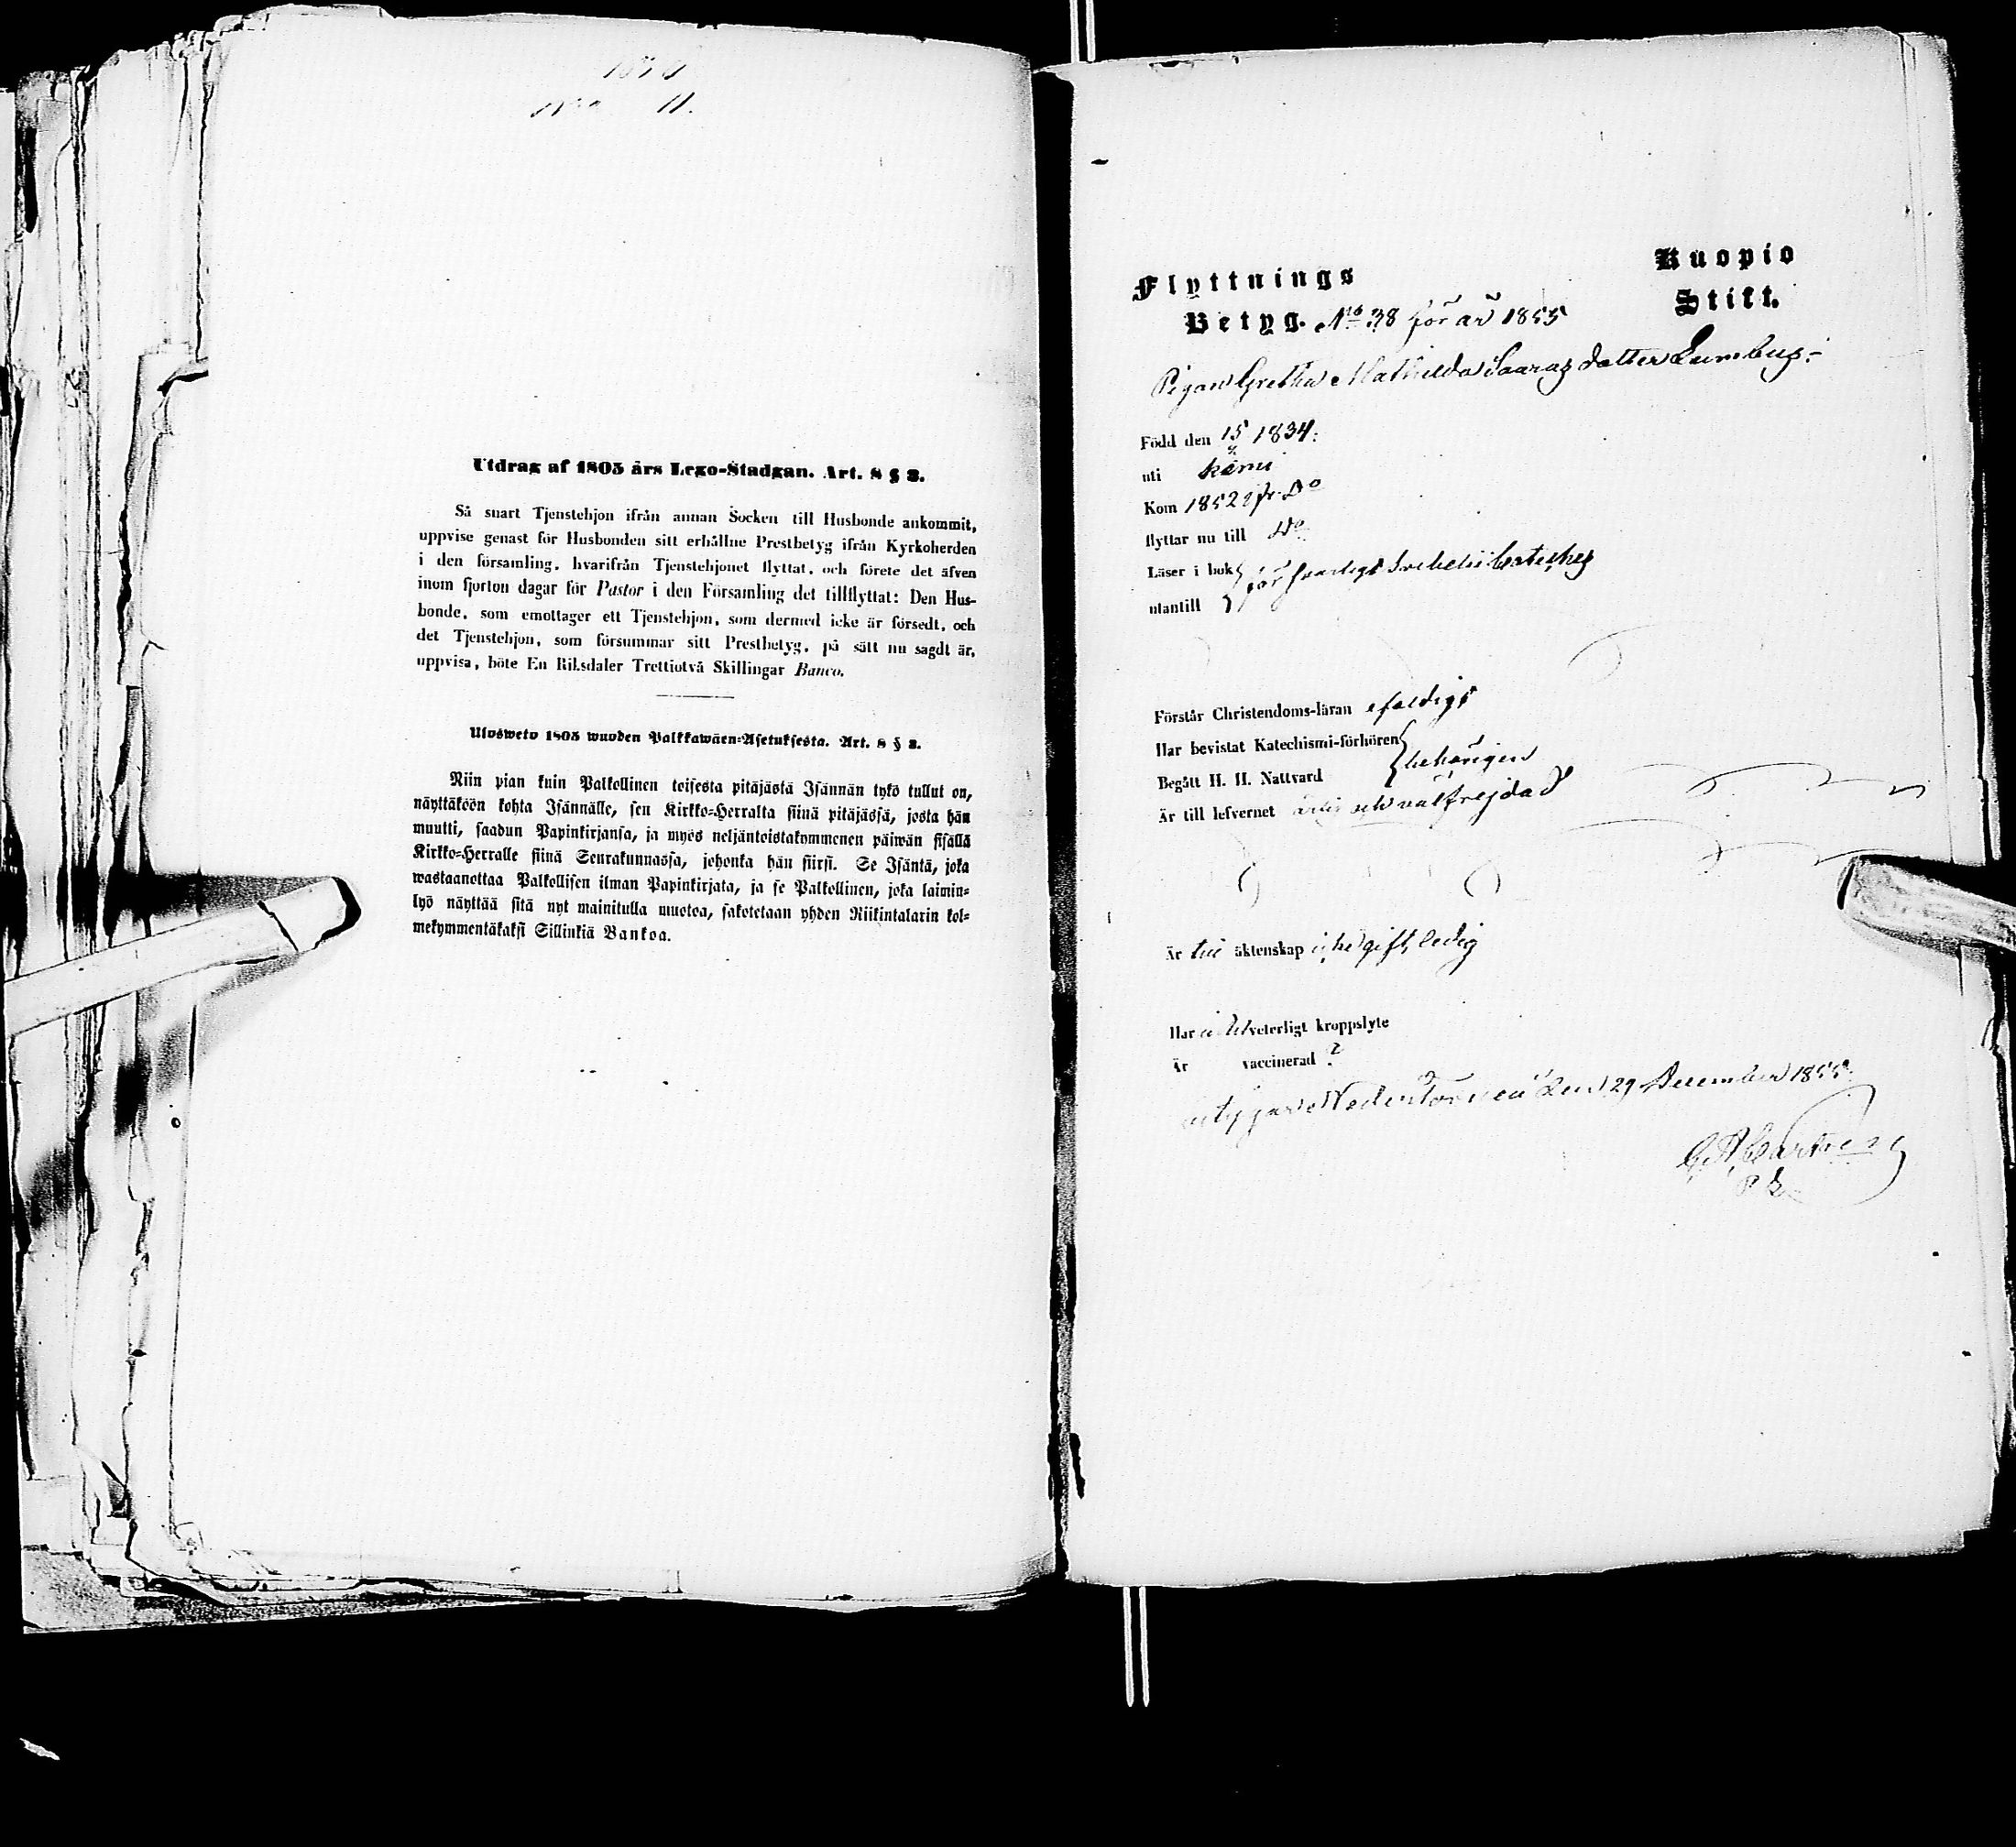 11.
Utdrag af 1805 års Lego-Stadgan. Art. 8 § 3.
Så snart Tjenstehjon ifrån annan Socken till Husbonde ankommit,
uppvise genast för Husbonden sitt erhållne Prestbetyg ifrån Kyrkoherden
i den församling, hvarifrån Tjenstehjonet flyttat, och förete det äfven
inom fjorton dagar för Pastor i den Församling det tillflyttat: Den Hus-
bonde, som emottager ett Tjenstehjon, som dermed icke är försedt, och
det Tjenstehjon, som försummar sitt Prestbetyg, på sätt nu sagdt är,
uppvisa, böte En Riksdaler Trettiotvå Skillingar Banco.
Ulosweto 1805 wuoden Palkkawäen-Asetuksesta. Art. 8 § 3.
Niin pian kuin Palkollinen toisesta pitäjästä Isännän tykö tullut on,
näyttäköön kohta Isännälle, sen Kirkko-Herralta siinä pitäjässä, josta hän
muutti, saadun Papinkirjansa, ja myös neljäntoistakymmenen päiwän sisällä
Kirkko-Herralle siinä Seurakunnassa, johonka hän siirsi. Se Isäntä, joka
wastaanottaa Palkollisen ilman Papinkirjata, ja se Palkollinen, joka laimin-
lyö näyttää sitä nyt mainitulla muotoa, sakotetaan yhden Riikintalarin kol-
mekymmentäkaksi Sillinkiä Bankoa.
Flyttnings
Betyg. No 38 för år 1855
Kuopio
Stift.
Pigan Gretha Mathilda Saarasdotter Lumbus.-
Född den 15 1834.
uti Kemi
Kom 1852 fr. Do
flyttar nu till Do
Läser i bok
utantill
Förstår Christendoms-läran efaldigt
Har bevistat Katechismi-förhören
Begått H. H. Nattvard behörigen
Är till lefvernet välfrejdad
Är till äktenskap ledig
Har veterligt kroppslyte
Är vaccinerad ?
betygar Neder Torneå den 29 December 1855.